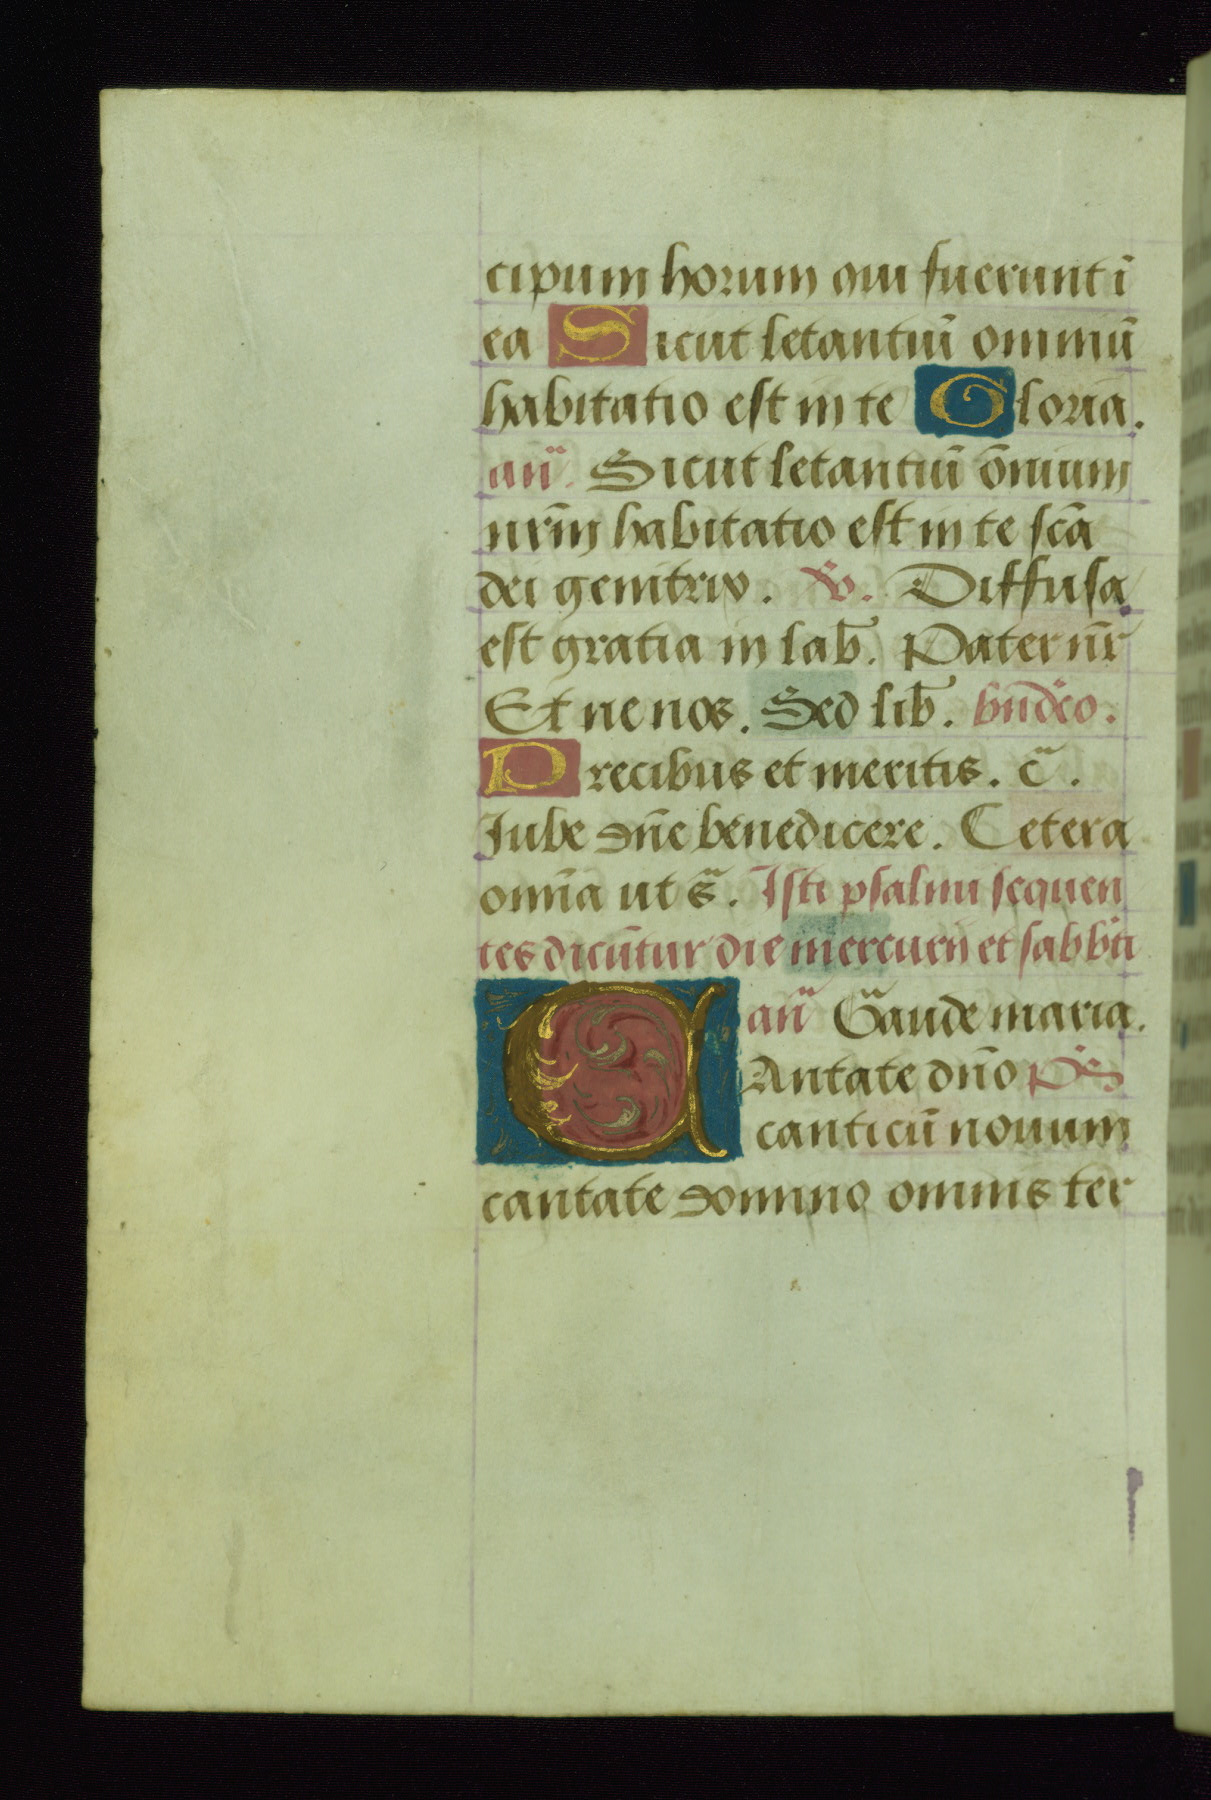 cipum horum qui fuerunt ī
ea Sicut letantiū omniū
habitatio est in te Gloria.
añ. Sicut letantiū ōnium
nrīm habitatio est in te scā
dei genitrix. V. Diffusa
est gratia in lab̄. Pater nr̄
Et ne nos. Sed lib̄. bn̄dco.
Precibus et meritis. cᵃ.
Iube dn̄e benedicere. Cetera
omīa ut sᵃ. Isti psalmi sequen
tes dicūtur die mercurii et sabbti
añ Gaude maria.
CAntate dn̄o Ps
canticū nouum
cantate domino omnis ter